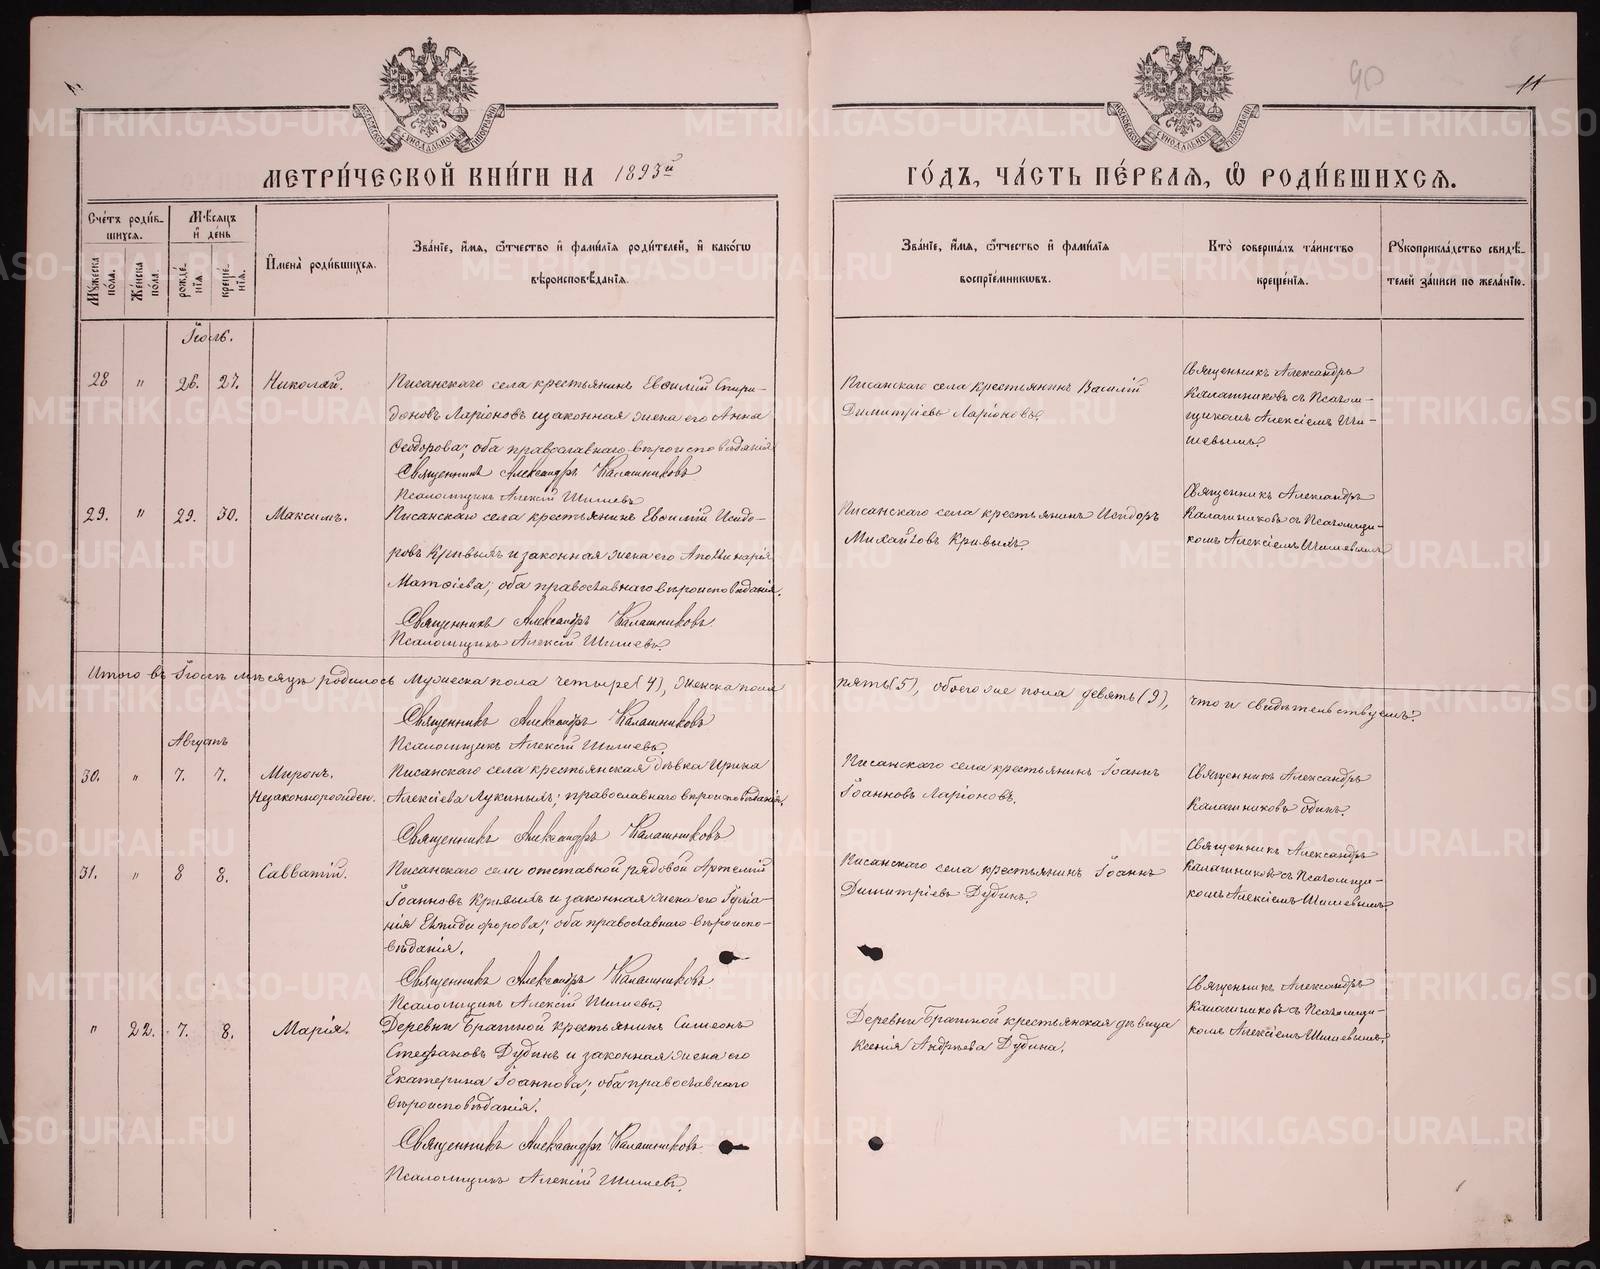 90
11
МЕТРИ́ЧЕСКОЙ КНИ́ГИ НА 1893й
ГО́ДЪ, ЧА́СТЬ ПЕ́РВАЯ, Ѽ РОДИ́ВШИХСЯ.
Сче́тъ роди́вшихся.
Мꙋ́жеска по́ла.
Же́нска по́ла.
Мѣ́сяцъ и҆ де́нь
рожде́нїя.
креще́нїя.
И҆мена̀ роди́вшихся.
Зва́нїе, и҆́мя, ѻ҆́тчество и҆ фами́лїя роди́телей, и҆ како́гѡ
вѣроисповѣ́данїя.
Зва́нїе, и҆́мя, ѻ҆́тчество и҆ фами́лїя
воспрїе́мникѡвъ.
Кто̀ соверша́лъ та́инство
креще́нїя.
Рꙋкоприкла́дство свидѣ́телей за́писи по жела́нїю.
Іюль.
28 " 26. 27. Николай.
Писанскаго села крестьянинъ Евѳимій Спири-
доновъ Ларіоновъ и законная жена его Анна
Ѳеодорова; оба православнаго вѣроисповѣданія
Священникъ Александръ Калашниковъ
Псаломщикъ Алексій Шишевъ
Писанскаго села крестьянинъ Василій
Димитріевъ Ларіоновъ.
Священникъ Александръ
Калашниковъ съ Псалом-
щикомъ Алексіемъ Ши-
шевымъ.
29. " 29. 30. Максимъ.
Писанскаго села крестьянинъ Евѳимій Исидо-
ровъ Кривыхъ и законная жена его Аполинарія
Матѳіева; оба православнаго вѣроисповѣданія.
Священникъ Александръ Калашниковъ
Псаломщикъ Алексій Шишевъ.
Писанскаго села крестьянинъ Исидоръ
Михайловъ Кривыхъ.
Священникъ Александръ
Калашниковъ съ Псаломщи-
комъ Алексіемъ Шишевымъ
Итого въ Іюлѣ мѣсяцѣ родилось мужеска пола четыре (4), женска пола
пять (5), обоего же пола девять (9), что и свидѣтельствуемъ:
Священникъ Александръ Калашниковъ
Псаломщикъ Алексій Шишевъ.
Августъ
30. " 7. 7. Миронъ.
Незаконнорожден.
Писанскаго села крестьянская дѣвка Ирина
Алексіева Лукиныхъ; православнаго вѣроисповѣданія.
Священникъ Александръ Калашниковъ
Писанскаго села крестьянинъ Іоаннъ
Іоанновъ Ларіоновъ.
Священникъ Александръ
Калашниковъ одинъ.
31. " 8 8. Савватій.
Писанскаго села отставной рядовой Артемій
Іоанновъ Кривыхъ и законная жена его
Елпидифорова; оба православнаго вѣроиспо-
вѣданія.
Священникъ Александръ Калашниковъ
Псаломщикъ Алексій Шишевъ.
Писанскаго села крестьянинъ Іоаннъ
Димитріевъ Дубинъ.
Священникъ Александръ
Калашниковъ съ Псаломщи-
комъ Алексіемъ Шишевымъ.
" 22. 7. 8. Марія.
Деревни Братной крестьянинъ Симеонъ
Стефановъ Дубинъ и законная жена его
Екатерина Іоаннова; оба православнаго
вѣроисповѣданія.
Священникъ Александръ Калашниковъ
Псаломщикъ Алексій Шишевъ.
Деревни Братной крестьянская дѣвица
Ксенія Андреева Дубина.
Священникъ Александръ
Калашниковъ съ Псаломщи-
комъ Алексіемъ Шишевымъ.
METRIKI.GASO-URAL.RU